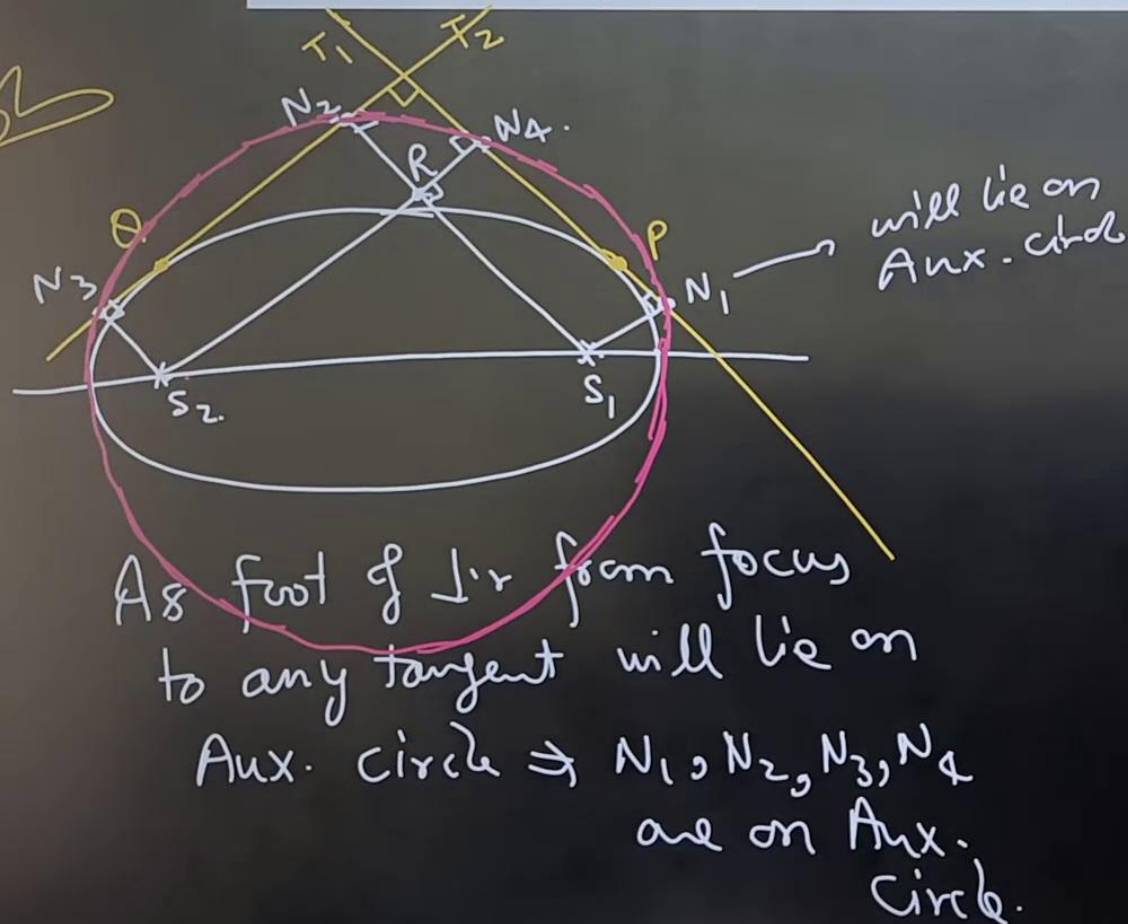 T1
T2
N2
N4.
R
Q.
P
N3
N1 → will lie on
Aux. circl
S2.
S1
As foot of ⊥'r from focus
to any tangent will lie on
Aux. circle ⇒ N1, N2, N3, N4
are on Aux.
Circle.